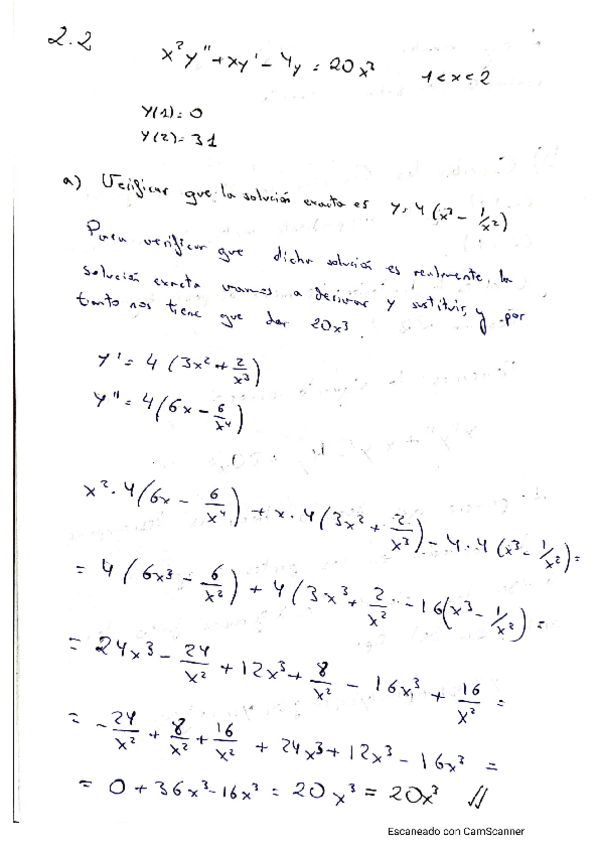 2.2 x²y''+xy'-4y=20x³ 1<x<2
y(1)=0
y(2)=31
a) Verificar que la solución exacta es y=4(x³-1/x²)
Para verificar que dicha solución es realmente la
solución exacta vamos a derivar y sustituir, y por
tanto nos tiene que dar 20x³
y'=4(3x²+2/x³)
y''=4(6x-6/x⁴)
x²·4(6x-6/x⁴)+x·4(3x²+2/x³)-4·4(x³-1/x²)=
=4(6x³-6/x²)+4(3x³+2/x²-16(x³-1/x²)=
=24x³-24/x²+12x³+8/x²-16x³+16/x²=
=-24/x²+8/x²+16/x²+24x³+12x³-16x³=
=0+36x³-16x³=20x³=20x³ //
Escaneado con CamScanner